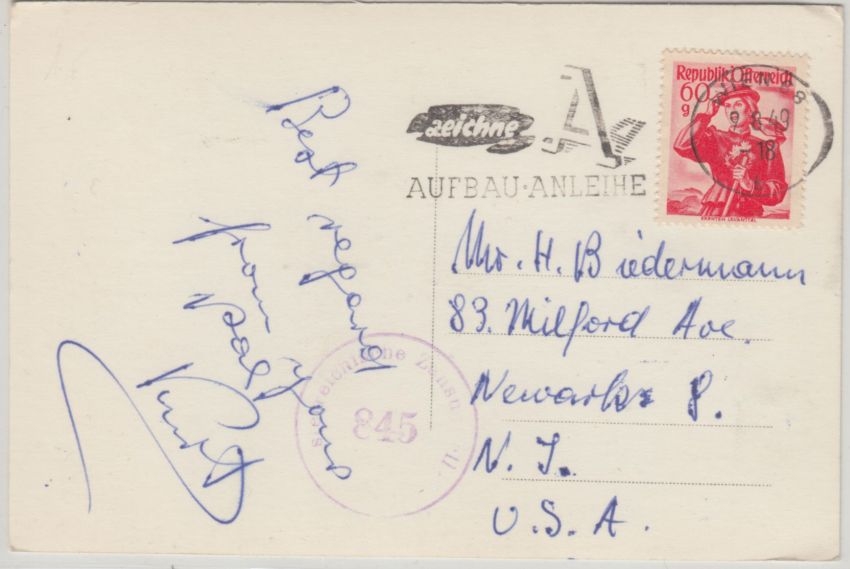 Best regard
from yours
pal
Kurt
zeichne
A
AUFBAU·ANLEIHE
Republik Österreich
60
g
WIEN
49
-18
KÄRNTEN LAVANTTAL
Mr. H. Biedermann
83. Milford Ave.
Newark 8.
N. J.
U. S. A.
845